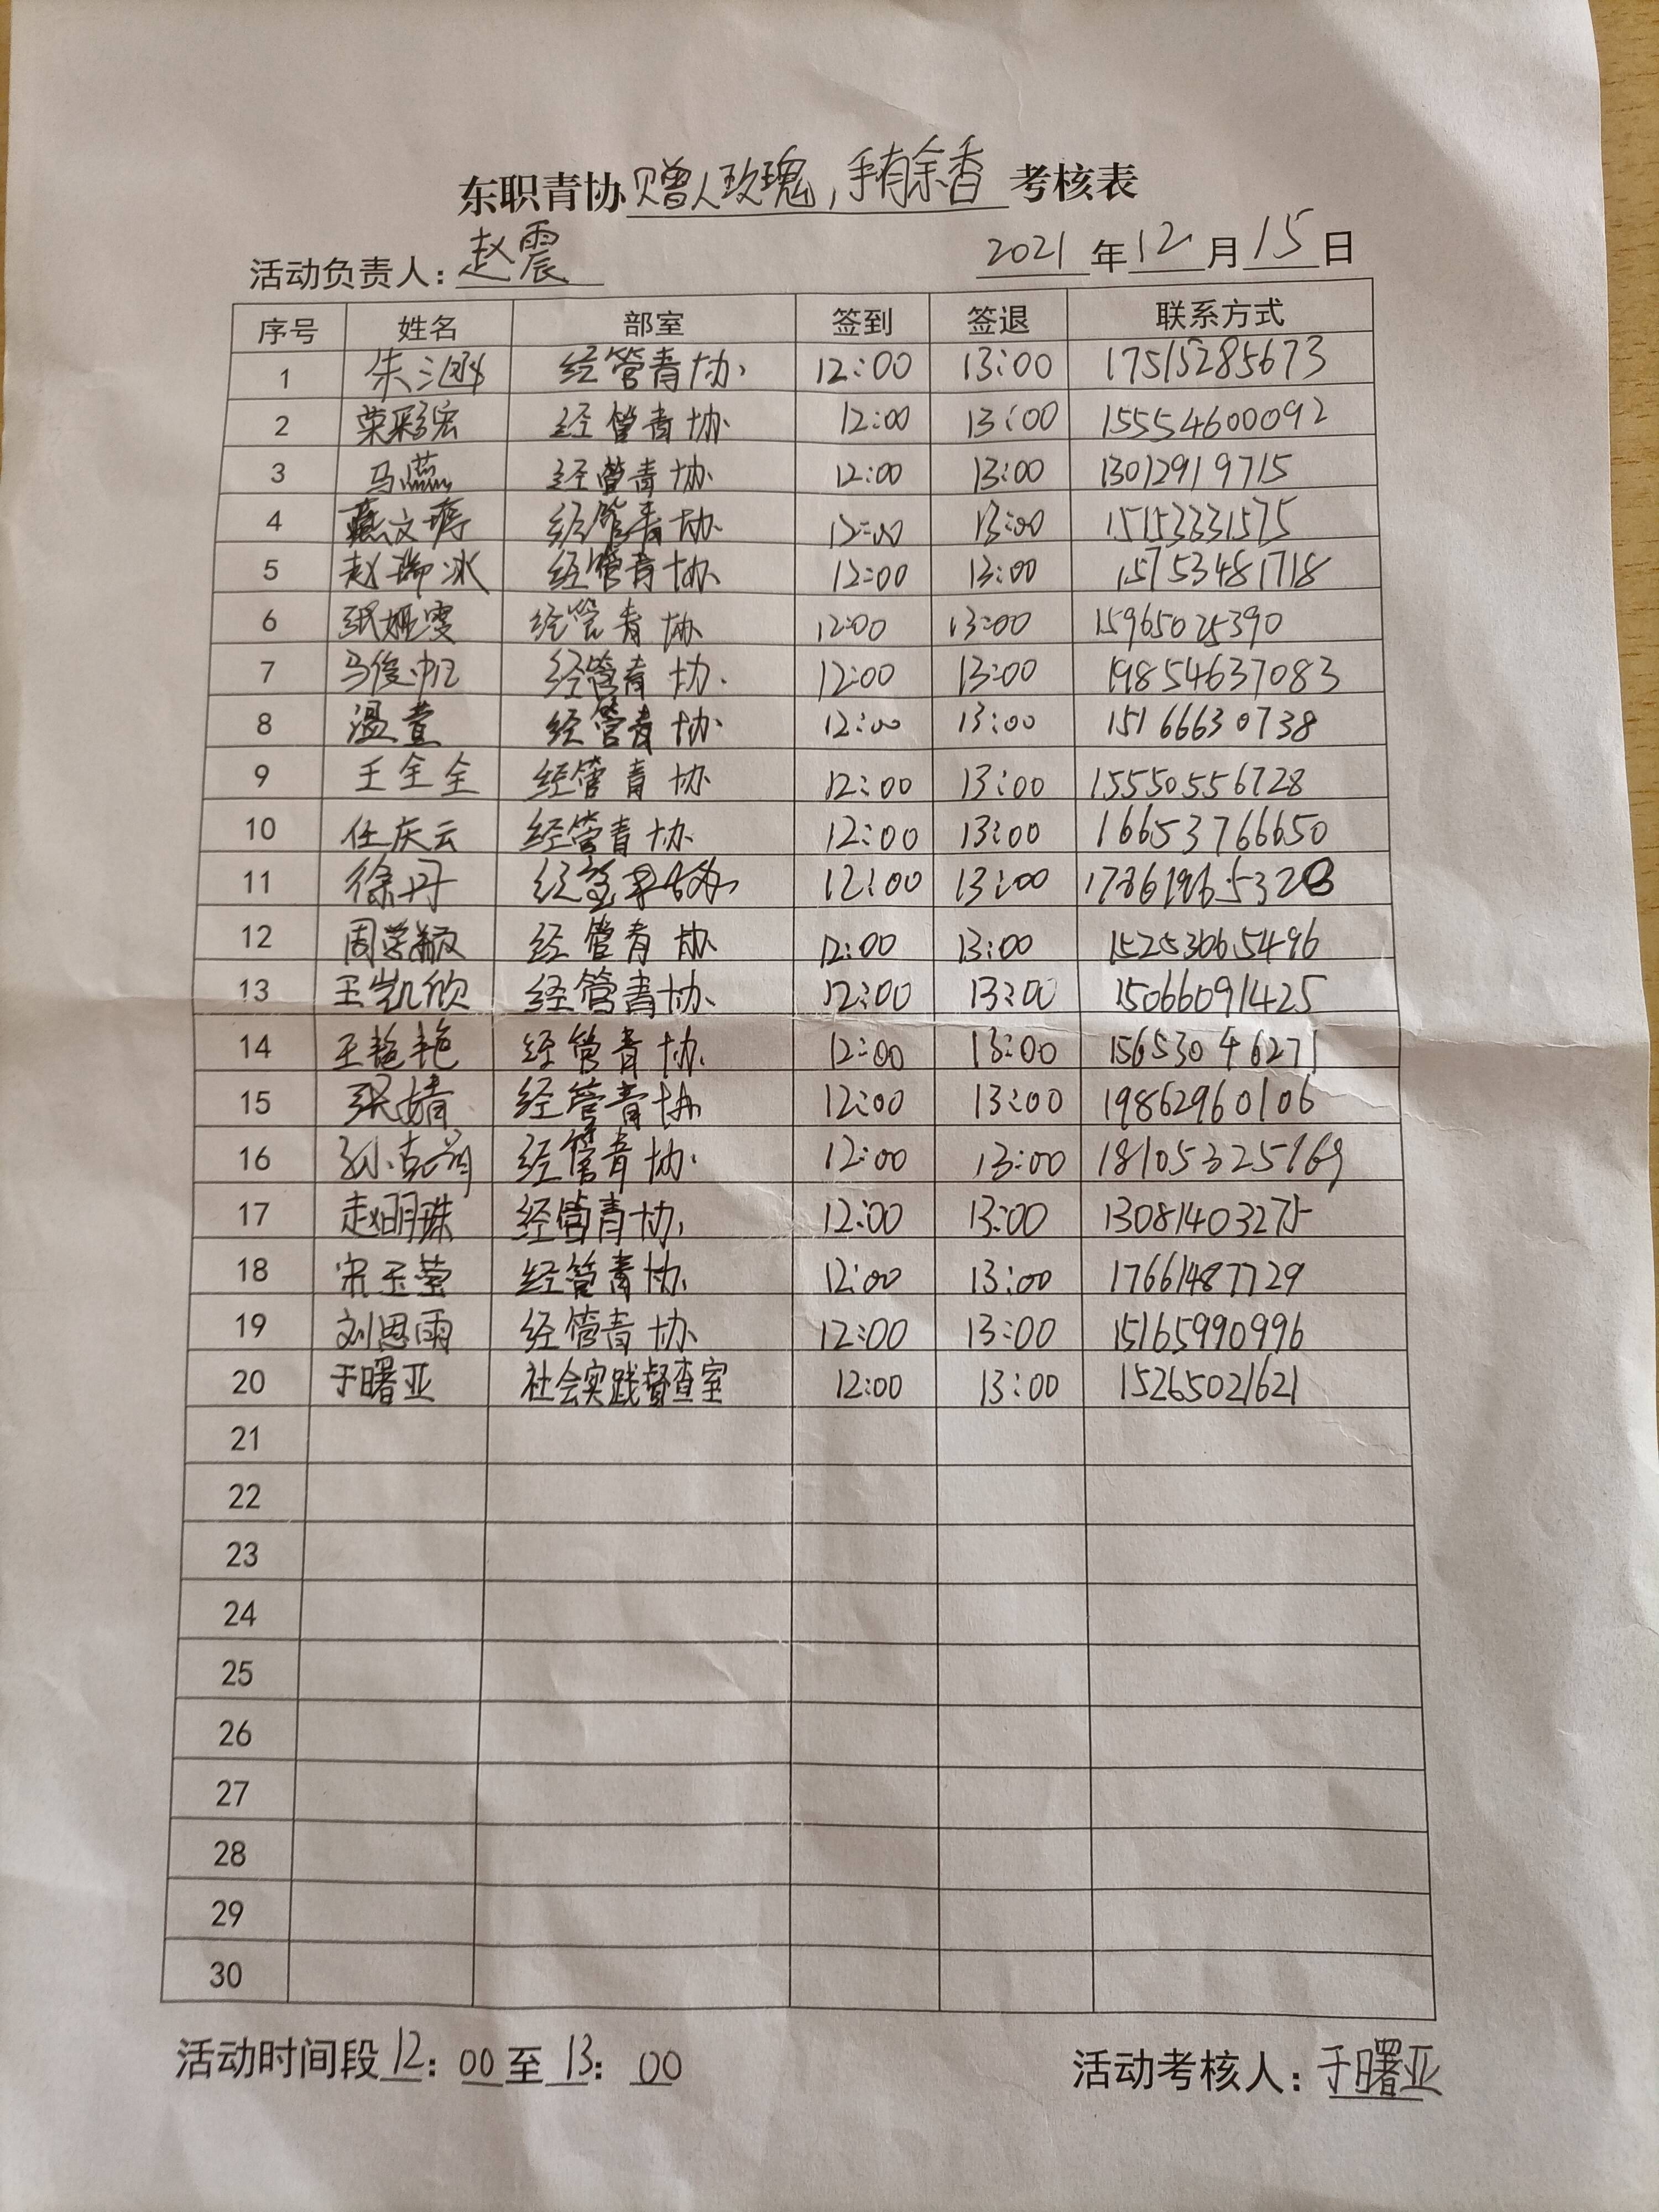 东职青协赠人玫瑰,手有余香考核表
活动负责人:赵震 2021年12月15日
序号 姓名 部室 签到 签退 联系方式
1 朱 经管青协 12:00 13:00 17515285673
2 荣彩宏 经管青协 12:00 13:00 15554600092
3 马燕 经管青协 12:00 13:00 13012919715
4 经管青协 12:00 13:00 15153331575
5 赵瑞冰 经管青协 12:00 13:00 15753481718
6 张雅雯 经管青协 12:00 13:00 15965025390
7 马俊 经管青协 12:00 13:00 19854637083
8 温萱 经管青协 12:00 13:00 15166630738
9 王全全 经管青协 12:00 13:00 15550556728
10 任庆云 经管青协 12:00 13:00 16653766650
11 徐丹 12:00 13:00
12 周荣敏 经管青协 12:00 13:00
13 王凯欣 经管青协 12:00 13:00 15066091425
14 王艳艳 经管青协 12:00 13:00 15653046271
15 张婧 经管青协 12:00 13:00 19862960106
16 孙克 经管青协 12:00 13:00 18105325969
17 赵明珠 经管青协 12:00 13:00 13081403275
18 宋玉莹 经管青协 12:00 13:00 17661487729
19 刘恩雨 经管青协 12:00 13:00 15165990996
20 于曙亚 社会实践督查室 12:00 13:00 15265021621
21
22
23
24
25
26
27
28
29
30
活动时间段12:00至13:00 活动考核人:于曙亚